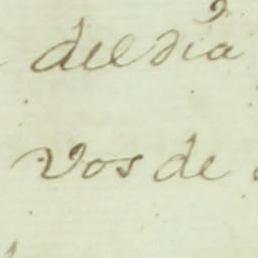 del dia
vos de